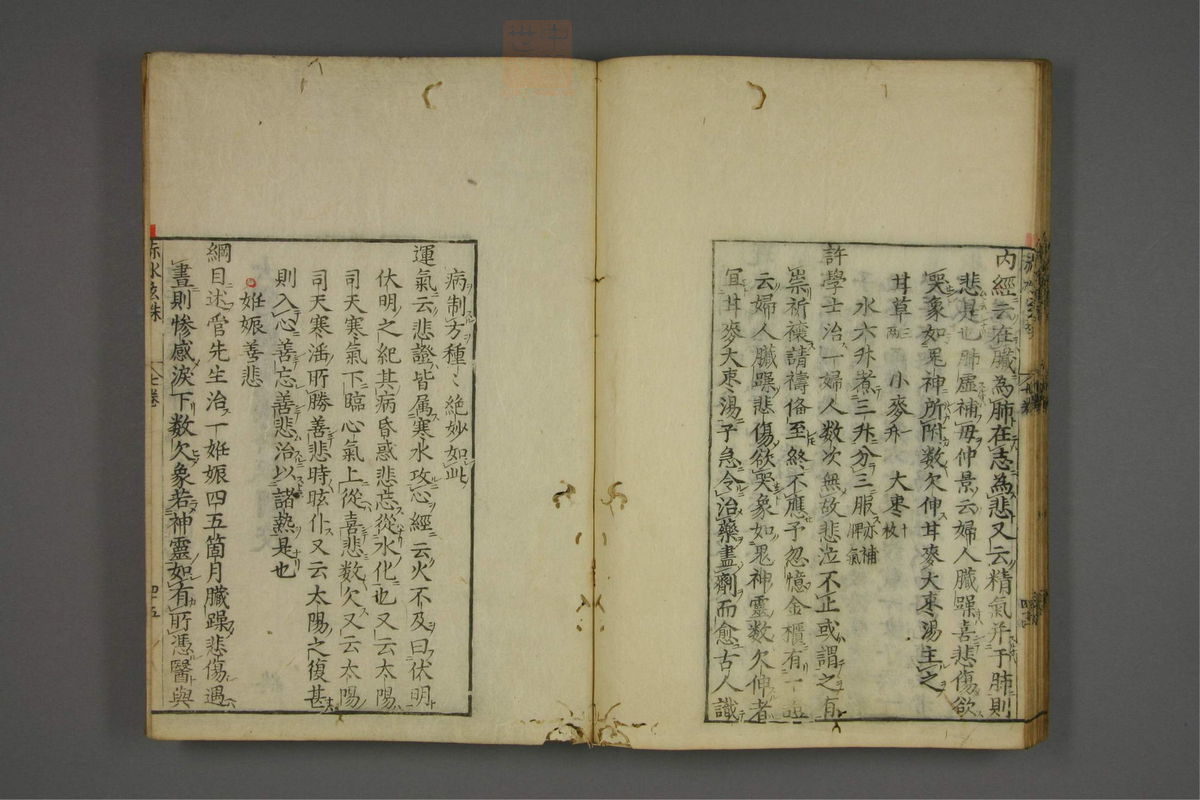 内經云在臟為肺在志為悲又云精氣并于肺則
悲是也肺虛補母仲景云婦人臟躁喜悲傷欲
哭象如鬼神所附数欠伸甘麥大枣湯主之
甘草三兩 小麥一升 大枣十枚
水六升煮三升分三服亦補脾氣
許學士治一婦人数次無故悲泣不止或謂之有
祟祈禳請禱俻至終不應予忽憶金櫃有一證
云婦人臟躁悲傷欲哭象如鬼神靈数欠伸者
宜甘麥大枣湯予急令治藥盡劑而愈古人識
病制方種〻絶妙如此
運氣云悲證皆属寒水攻心經云火不及曰伏明
伏明之紀其病昏惑悲忘從水化也又云太陽
司天寒氣下臨心氣上從喜悲数欠又云太陽
司天寒滛所勝善悲時眩仆又云太陽之復甚
則入心善忘善悲治以諸熱是也
姙娠善悲
綱目述管先生治一姙娠四五箇月臟躁悲傷遇
晝則慘感淚下数欠象若神靈如有所憑醫與
赤水玄珠
七卷
四十五